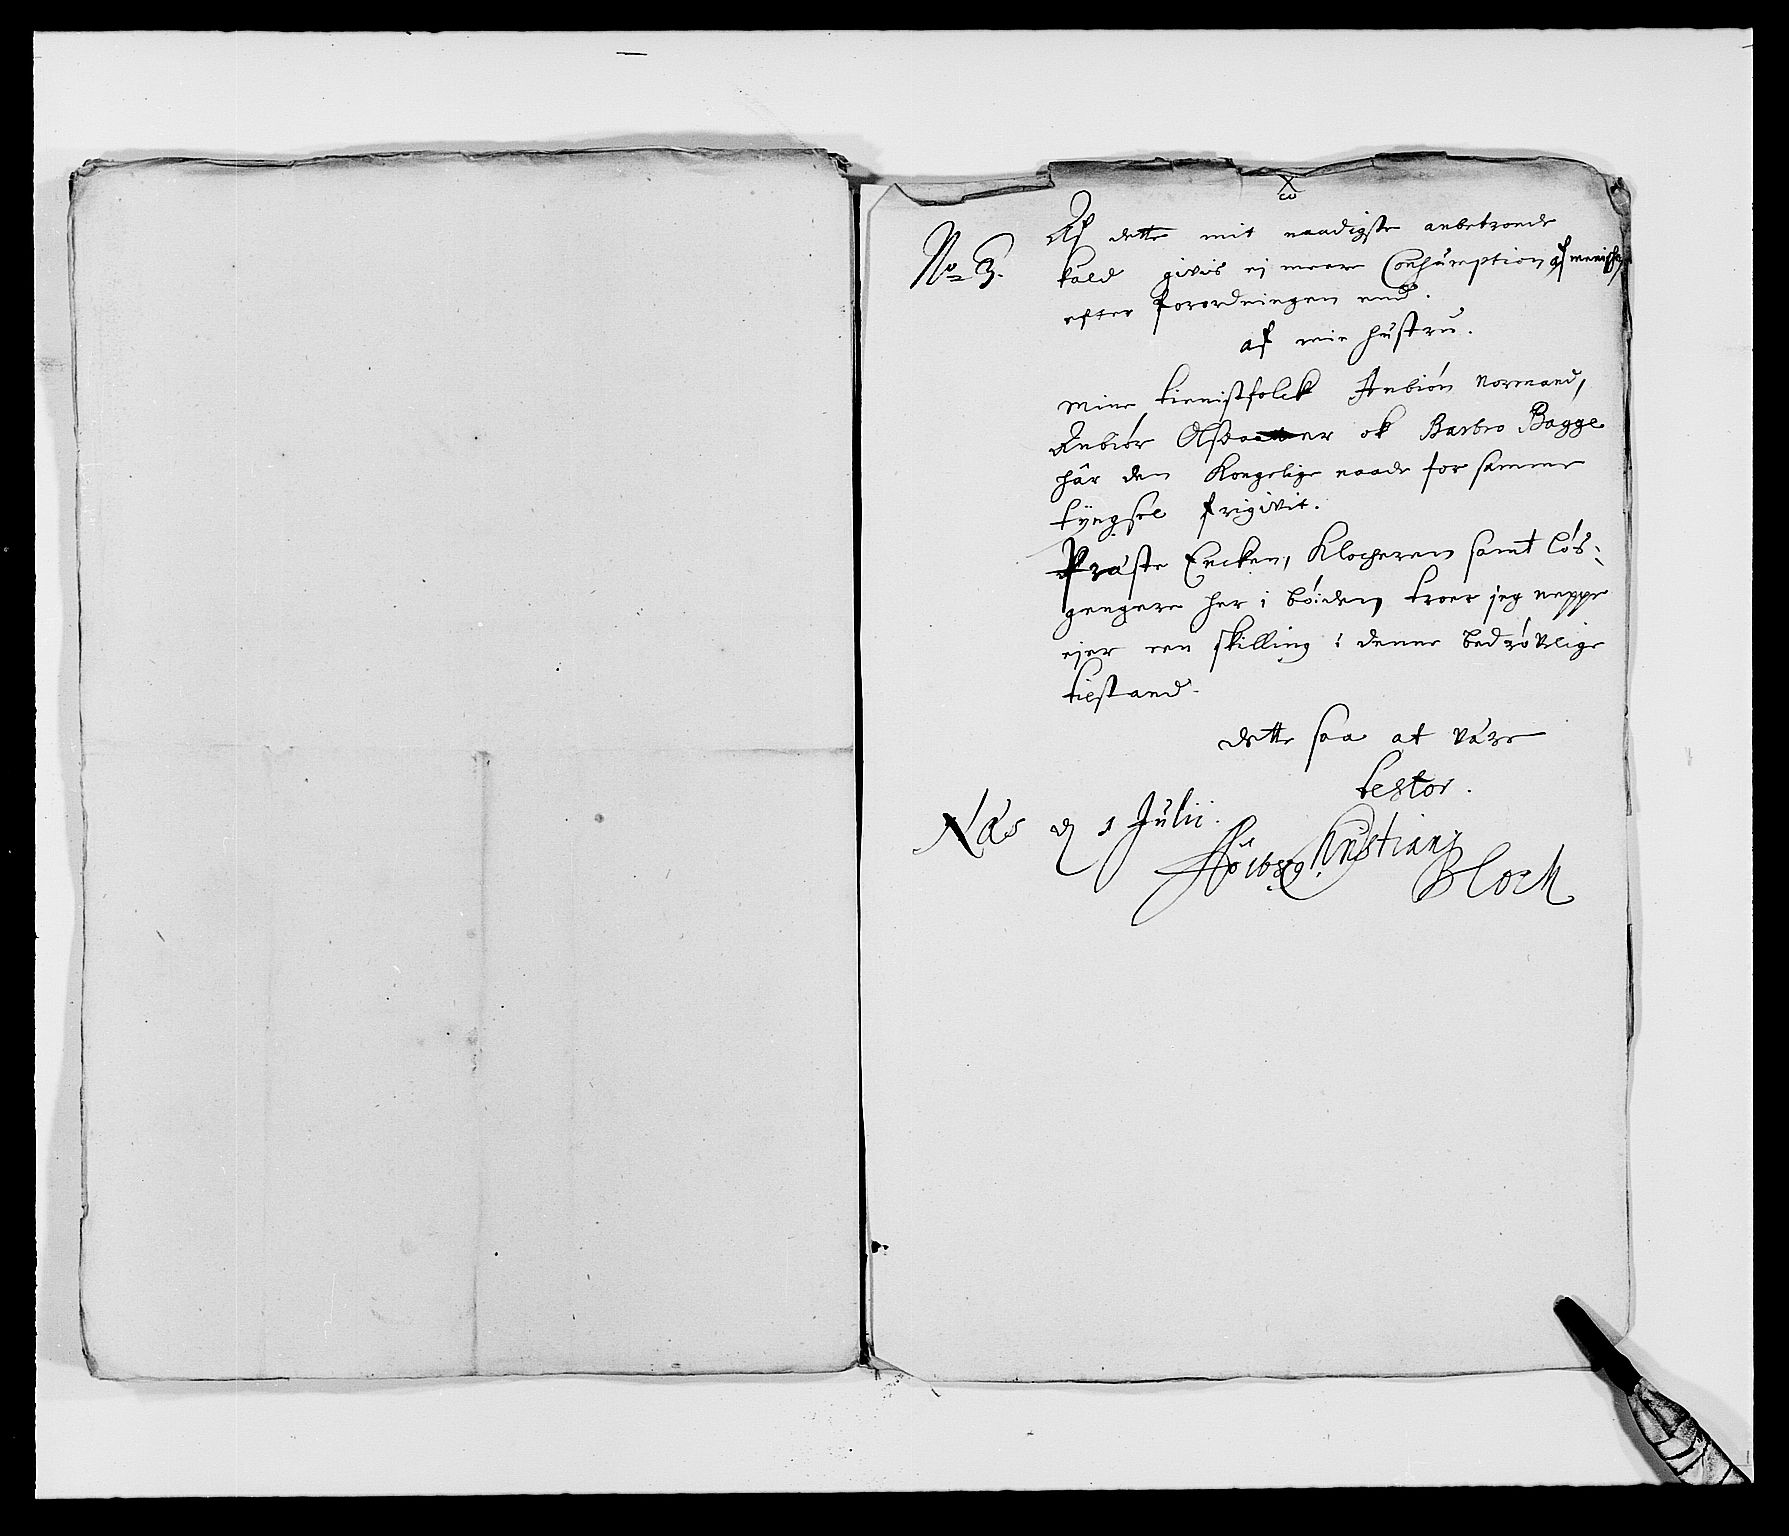 No 3.
Af dette mit naadigste anbetroede
kald givis ej meere Consumption af menisker
efter forordningen end.
af min hustru.
mine tienistfolck Anbiön Normand,
Anbiör ok Barbro Bagge
hâr den Kongelige naade for samme
tÿngsel frigivit.
Präste Encken, Klocheren samt lós-
gengere her i bóiden, troer jeg neppe
ejer een skilling i denne bedróvelige
tilstand.
dette saa at väre
testor.
Näs d 1 Julii.
Ao 1689. Christianj
Bloch